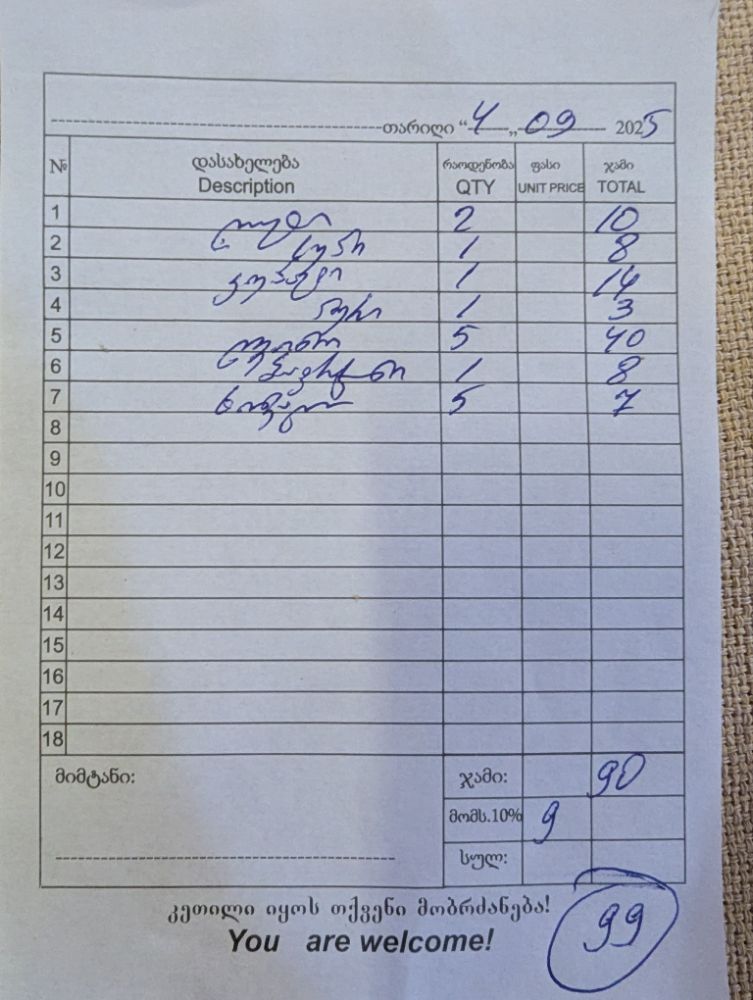 თარიღი “4„ 09 2025
№ დასახელება რაოდენობა ფასი ჯამი
Description QTY UNIT PRICE TOTAL
1 ლუდი 2 10
2 1 8
3 1 14
4 პური 1 3
5 5 40
6 1 8
7 5 7
8
9
10
11
12
13
14
15
16
17
18
მიმტანი: ჯამი: 90
მომს.10% 9
სულ:
99
კეთილი იყოს თქვენი მობრძანება!
You are welcome!